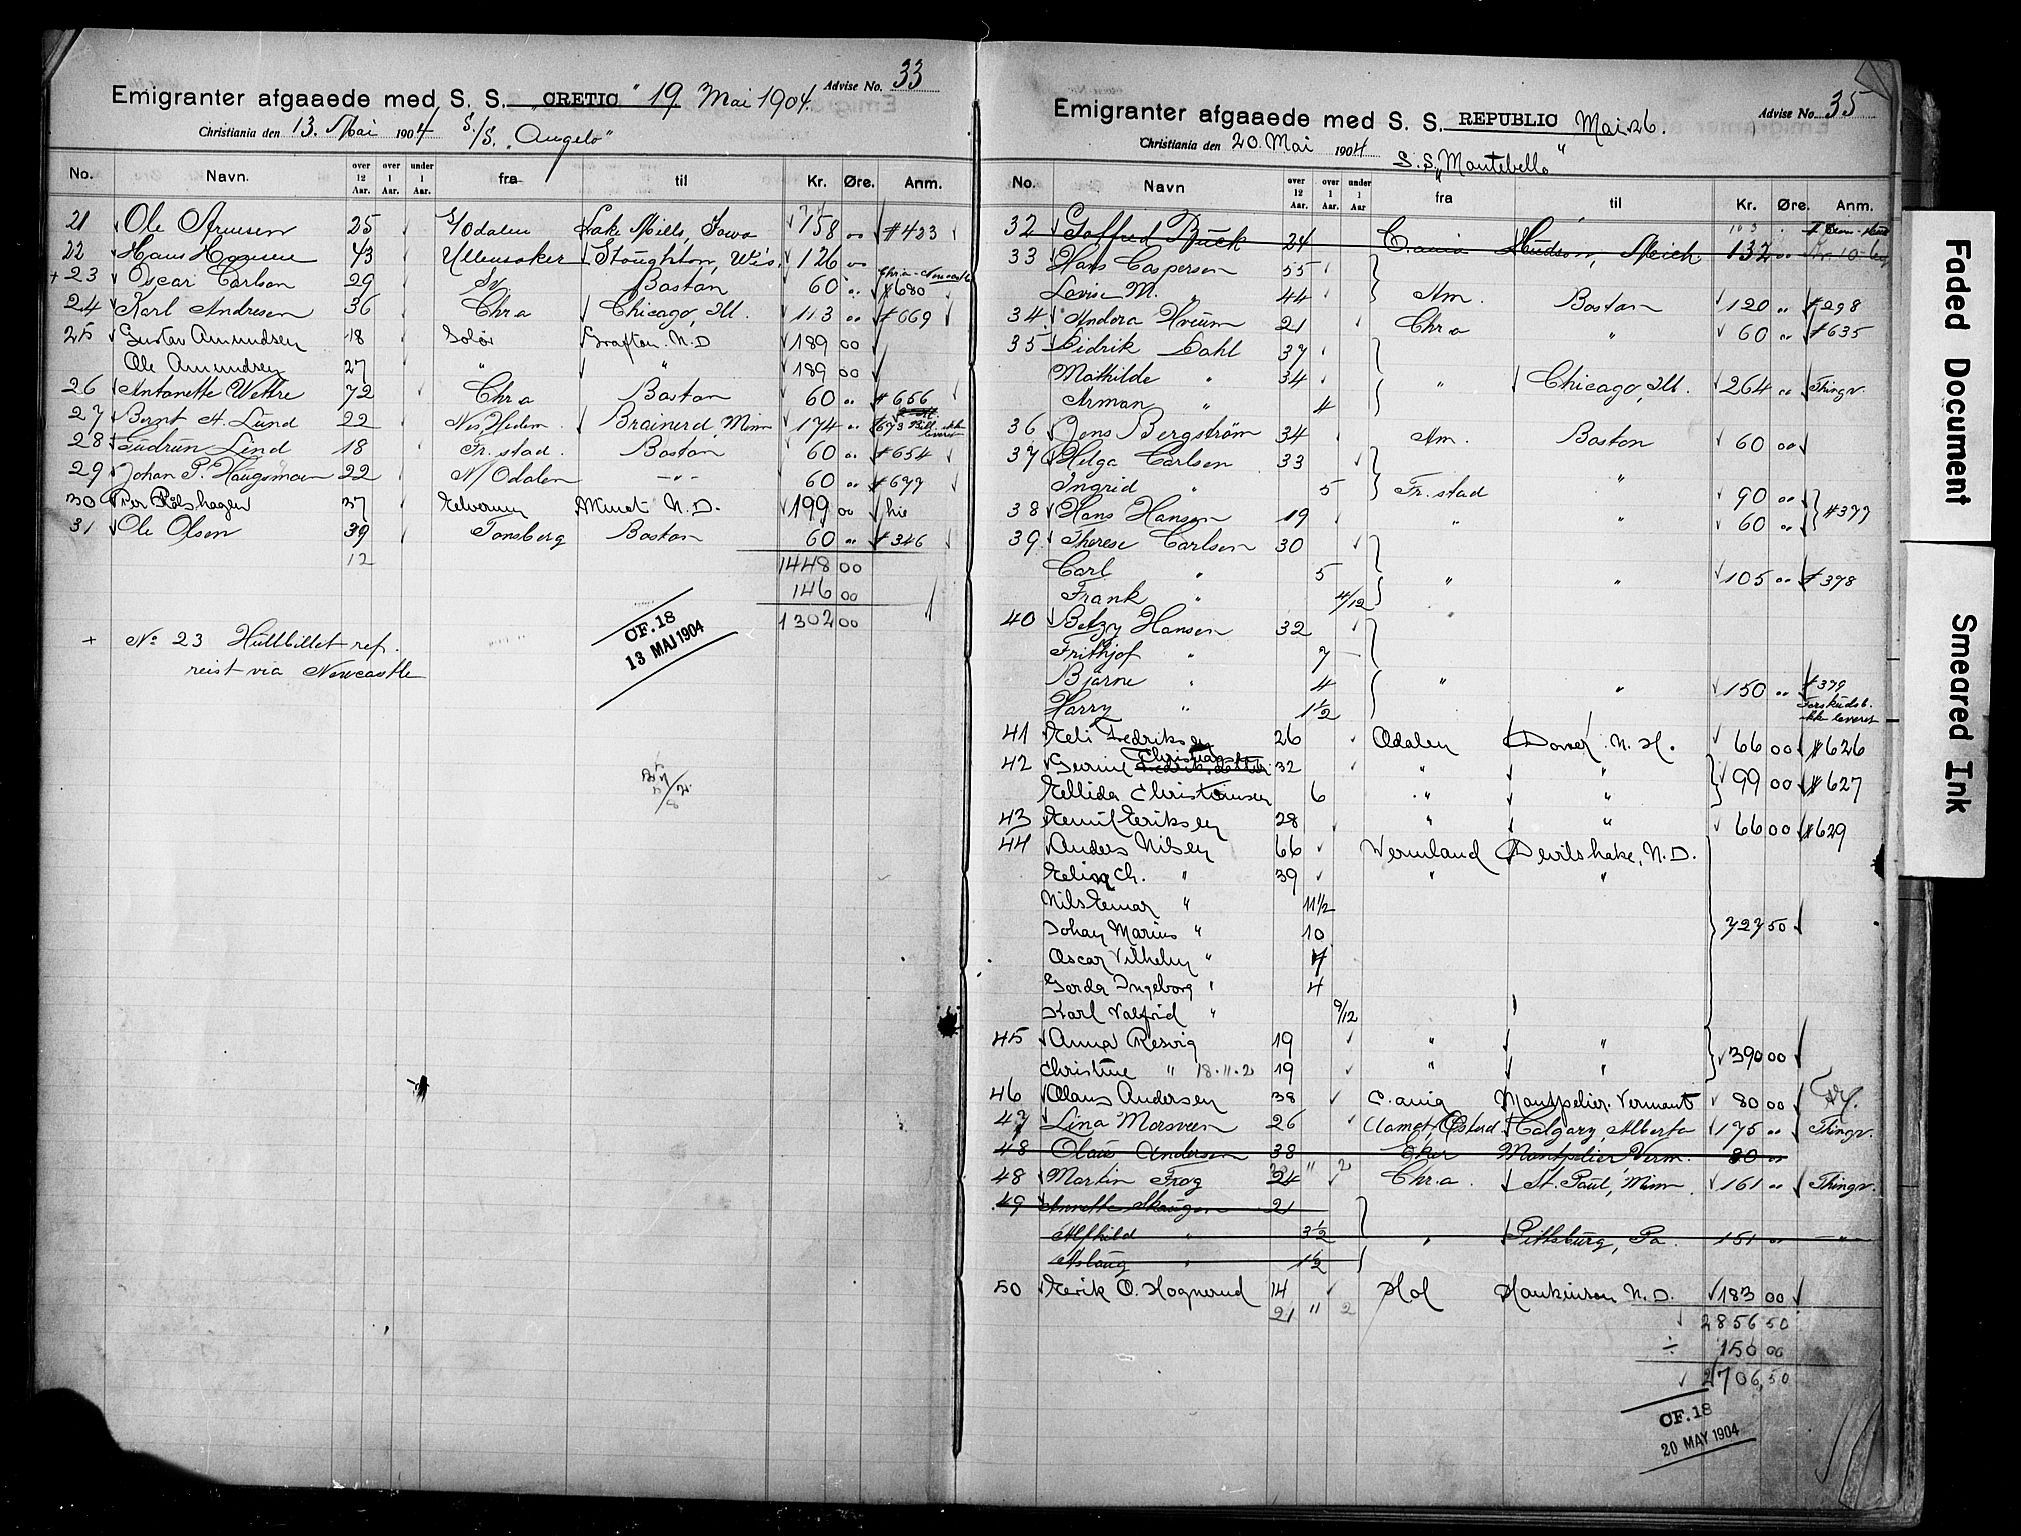 Emigranter afgaaede med S. S. „CRETIC" 19 Mai 1904. Advise No. 33
Christiania den 13. Mai 1904 S./S. „Angelo"
No. Navn. over 12 Aar. over 1 Aar. under 1 Aar. fra til Kr. Øre. Anm.
21 Ole 25 S/Odalen Lake Mills, Iowa 158 00 #423
22 Hans Hansen 43 Ullensaker Stoughton, Wis. 126 00
+ 23 Oscar Carlson 29 Sv. Boston 60 " Chr.a - Newcastle #680
24 Karl Andresen 36 Chr a Chicago, Ill. 113 00 #669
25 Gustav Amundsen 18 Solør Grafton N.D 189 00
Ole Amundsen 27 " " 189 00
26 Antonette Wettre 72 Chr a Boston 60 " #656
27 Bernt A. Lund 22 Nes, Hedem. Brainerd, Minn 174 " #673 Bill. ikke leveret
28 Gudrun Lind 18 Fr. stad. Boston 60 " #654
29 Johan P. Haugsmoen 22 N/Odalen -"- 60 " #677
30 Per Råshagen 37 Elverum Minot N.D. 199 00 hie
31 Ole Olsen 39 Tønsberg Boston 60 " #346
12 1448 00
146 00
1302 00
CF. 18
13 MAJ 1904
+ No 23 Hullbillet ref.
reist via Newcastle
Emigranter afgaaede med S. S. REPUBLIC Mai 26. Advise No. 35
Christiania den 20. Mai 1904 S. S. „Montebello"
No. Navn over 12 Aar. over 1 Aar. under 1 Aar fra til Kr. Øre. Anm.
32 Gotfred Buck 24 C.ania Hudson, Mich. 132 00
33 Hans Caspersen 55
Lovise M. " 44 Am. Boston 120 " #298
34 Andora Hvium 21 Chr.a " 60 " #635
35 Didrik Dahl 37
Mathilde " 34 " Chicago, Ill. 264 " Thingv.
Arman " 4
36 Jens Bergström 34 Am. Boston 60 00
37 Helga Carlsen 33
Ingrid " 5 Fr. stad " 90 00
38 Hans Hansen 19 " " 60 " #377
39 Therese Carlsen 30
Carl " 5 " " 105 00 #378
Frank " 4/12
40 Betzy Hansen 32
Frithjof " 7
Bjarne " 4 " " 150 " #379
Harry " 1½ Forskudsb. ikk leveret
41 Eli Fedriksen 26 Odalen Dover. N. H. 66 00 #626
42 Gerine Christians 32 " " 99 00 #627
Ellida Christiansen 6 " "
43 Emil Eriksen 28 " " 66 00 #629
44 Anders Nilsen 66 Vermland Devilslake, N.D.
Elise Ch. " 39 " "
Nils Einar " 11½
Johan Marius " 10 727 50
Oscar Vilhelm " 7
Gerda Ingeborg " 4
Karl Valfrid " 9/12
45 Anna Resvig 19 " " 390 00
Christine " 18·11·2 19 " "
46 Olaus Andersen 38 C.ania Montpelier. Vermont 80 00
47 Lina Morsveen 26 Aamot, Østerd Calgary, Alberta 175 " Thingv.
48 Olaus Andersen 38 Eker Montpelier Verm. 80 00
48 Martin Frog 24 Chr.a. St. Paul, Minn. 161 " Thingv.
49 Annette Skaugen 21
Alfhild " 3½ " Pittsburg, Pa. 151 " -"-
Aslaug " 1½
50 Erik O. Hognerud 14 Hol Hankinson N.D. 183 00
21 " 2 2856 50
÷ 150 00
2706,50
CF. 18
20 MAY 1904
Faded Document
Smeared Ink